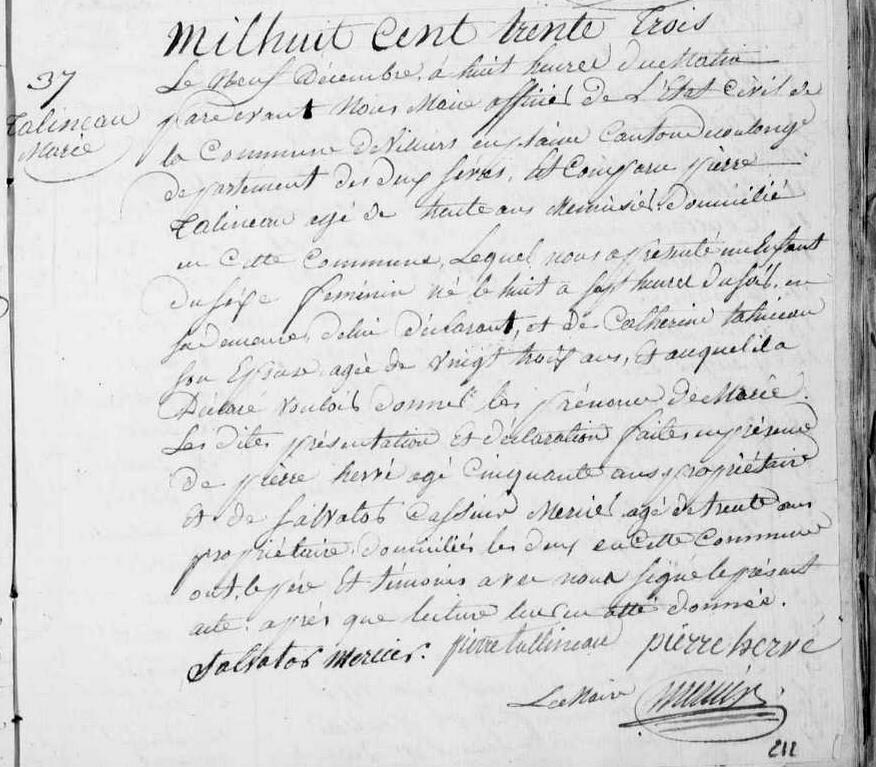 Milhuit Cent trente Trois
37
Talineau
Marie
Le Neuf Décembre, à huit heures du Matin
pardevant Nous Maire officier de L'Etat Civil de
la Commune de Villiers en plaine Canton de coulonge
departement des deux sevres, Est Comparu pierre
Talineau agé de trente ans Menuisier domicilié
en Cette Commune, Lequel nous a présenté un Enfant
du sexe feminin né le huit a sept heures du soir, en
sa demeure, de lui déclarant, et de Catherine
son Epouse agée de vingt trois ans, Et auquel il a
Déclaré vouloir donner les prénoms de Marie.
Les dites présentation Et déclaration faites en présence
De pierre hervé agé Cinquante ans propriétaire
Et de Salvator Mercier agé de trente ans
propriétaire, domiciliés les deux en Cette Commune
ont, le père Et témoins avec nous signé le présent
acte. après que lecture leur en a été donnée.
Salvator Mercier. pierre tallineau pierre hervé
Le Maire
212